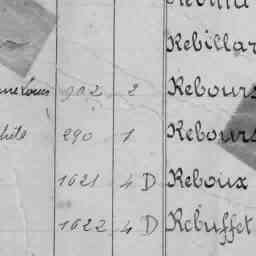 Rebillar
ne Louis 902 2 Rebours
290 1 Rebours
1621 4 D Reboux
1622 4 D Rebuffet